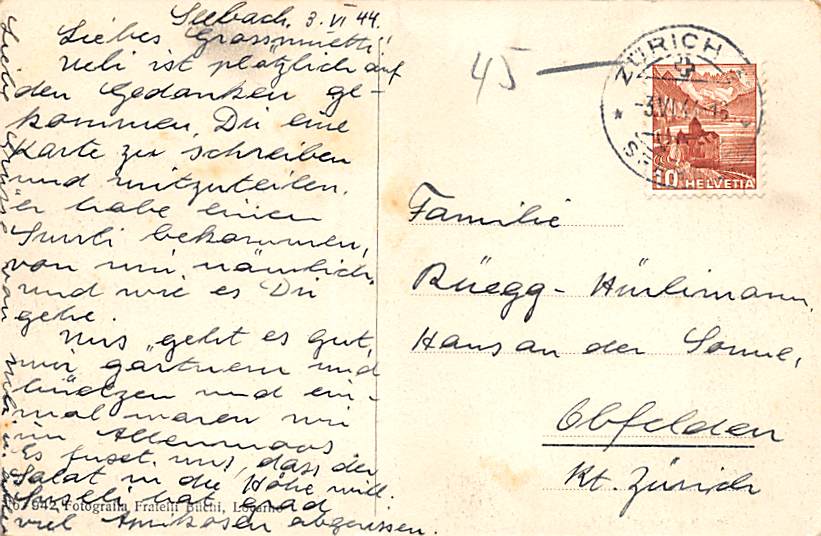 Seebach, 3. VI 44.
Liebes Grossmuetti!
Ueli ist plötzlich auf
den Gedanken ge-
kommen, Dir eine
Karte zu schreiben
und mitzuteilen,
er habe einen
bekommen,
von mir nämlich,
und wie es Dir
gehe.
Uns geht es gut,
wir gärtnern und
und ein-
mal waren wir
im Allenmoos
Es uns, dass der
Salat in die Höhe will.
hat grad
viel Aprikosen abgerissen.
Liebe Grüsse von
45
ZÜRICH
3.VI.44
10 HELVETIA
Familie
Rüegg-Hürlimann,
Haus an der Sonne,
Obfelden
Kt. Zürich
7942 Fotografia Fratelli Büchi, Locarno